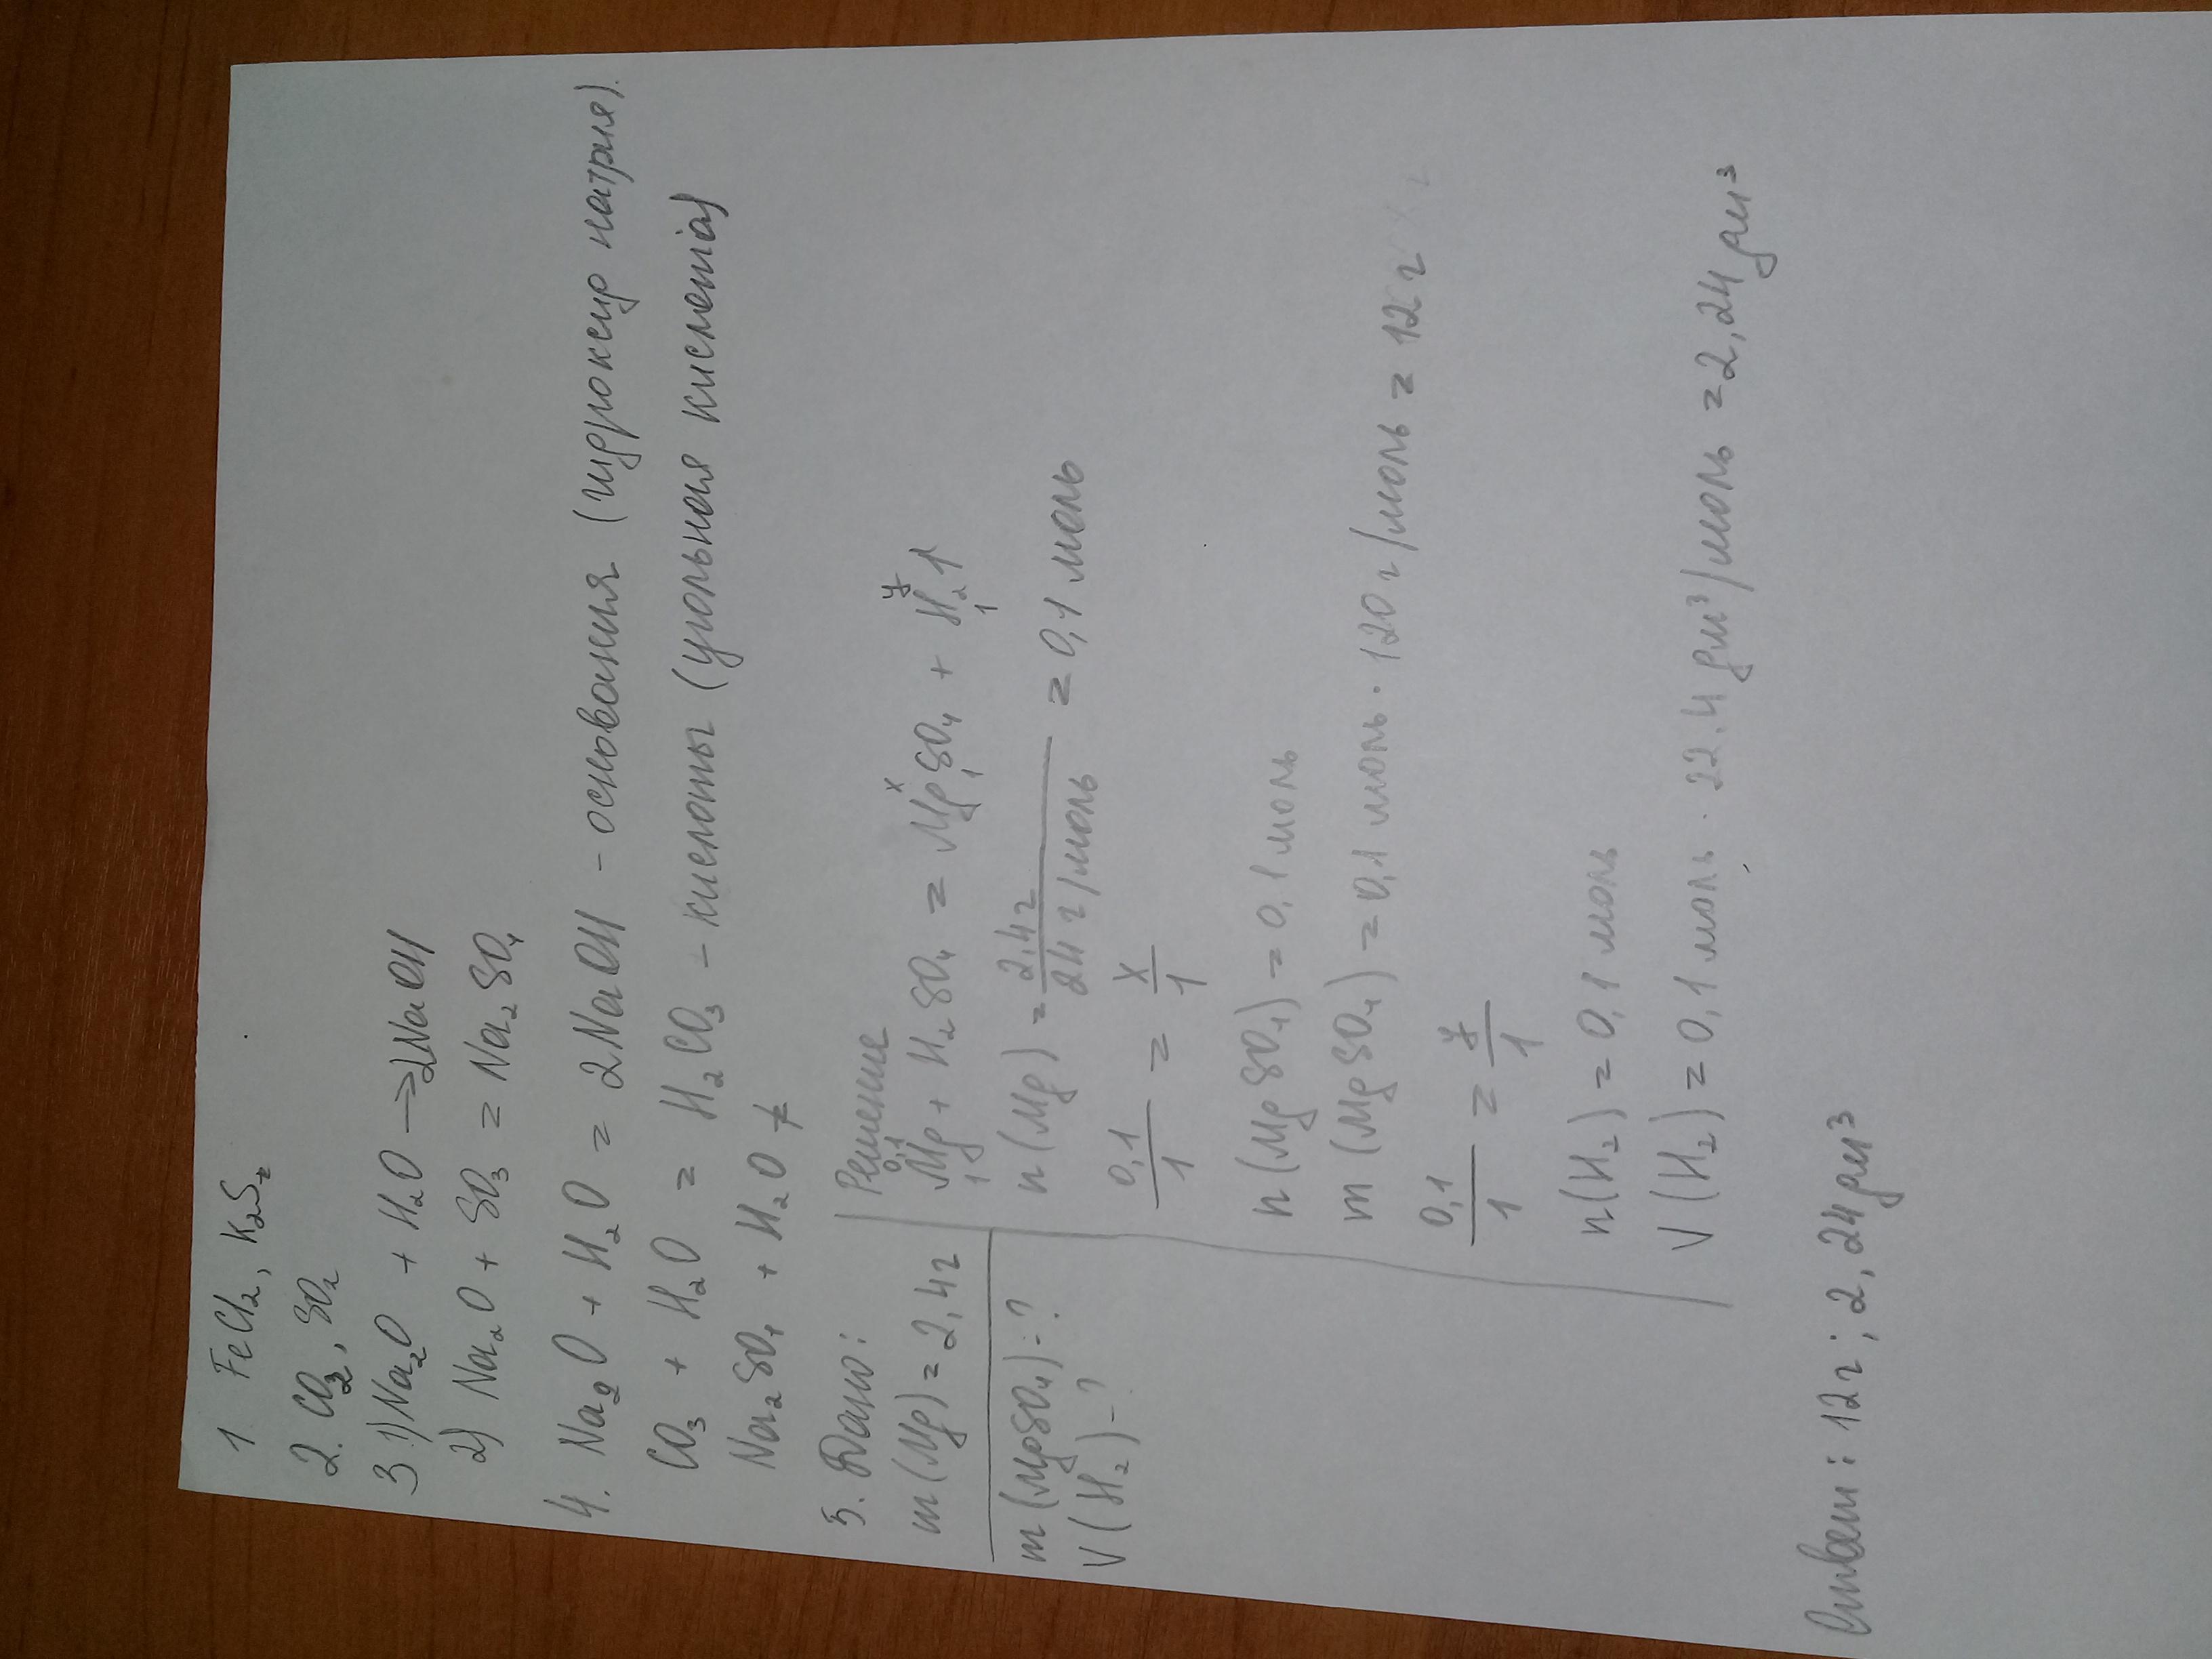 1. FeCl₂, K₂S
2. CO₂, SO₂
3. 1) Na₂O + H₂O → 2NaOH
2) Na₂O + SO₃ = Na₂SO₄
4. Na₂O + H₂O = 2NaOH - основания (гидроксид натрия).
CO₃ + H₂O = H₂CO₃ - кислоты (угольная кислота)
Na₂SO₄ + H₂O ≠
5. Дано:
m(Mg) = 2,4г
m(MgSO₄) - ?
V(H₂) - ?
Решение
0,1 x y
Mg + H₂SO₄ = MgSO₄ + H₂↑
1 1 1
n(Mg) = 2,4г / 24 г/моль = 0,1 моль
0,1/1 = x/1
n(MgSO₄) = 0,1 моль
m(MgSO₄) = 0,1 моль · 120 г/моль = 12 г
0,1/1 = y/1
n(H₂) = 0,1 моль
V(H₂) = 0,1 моль · 22,4 дм³/моль = 2,24 дм³
Ответ: 12г; 2,24дм³